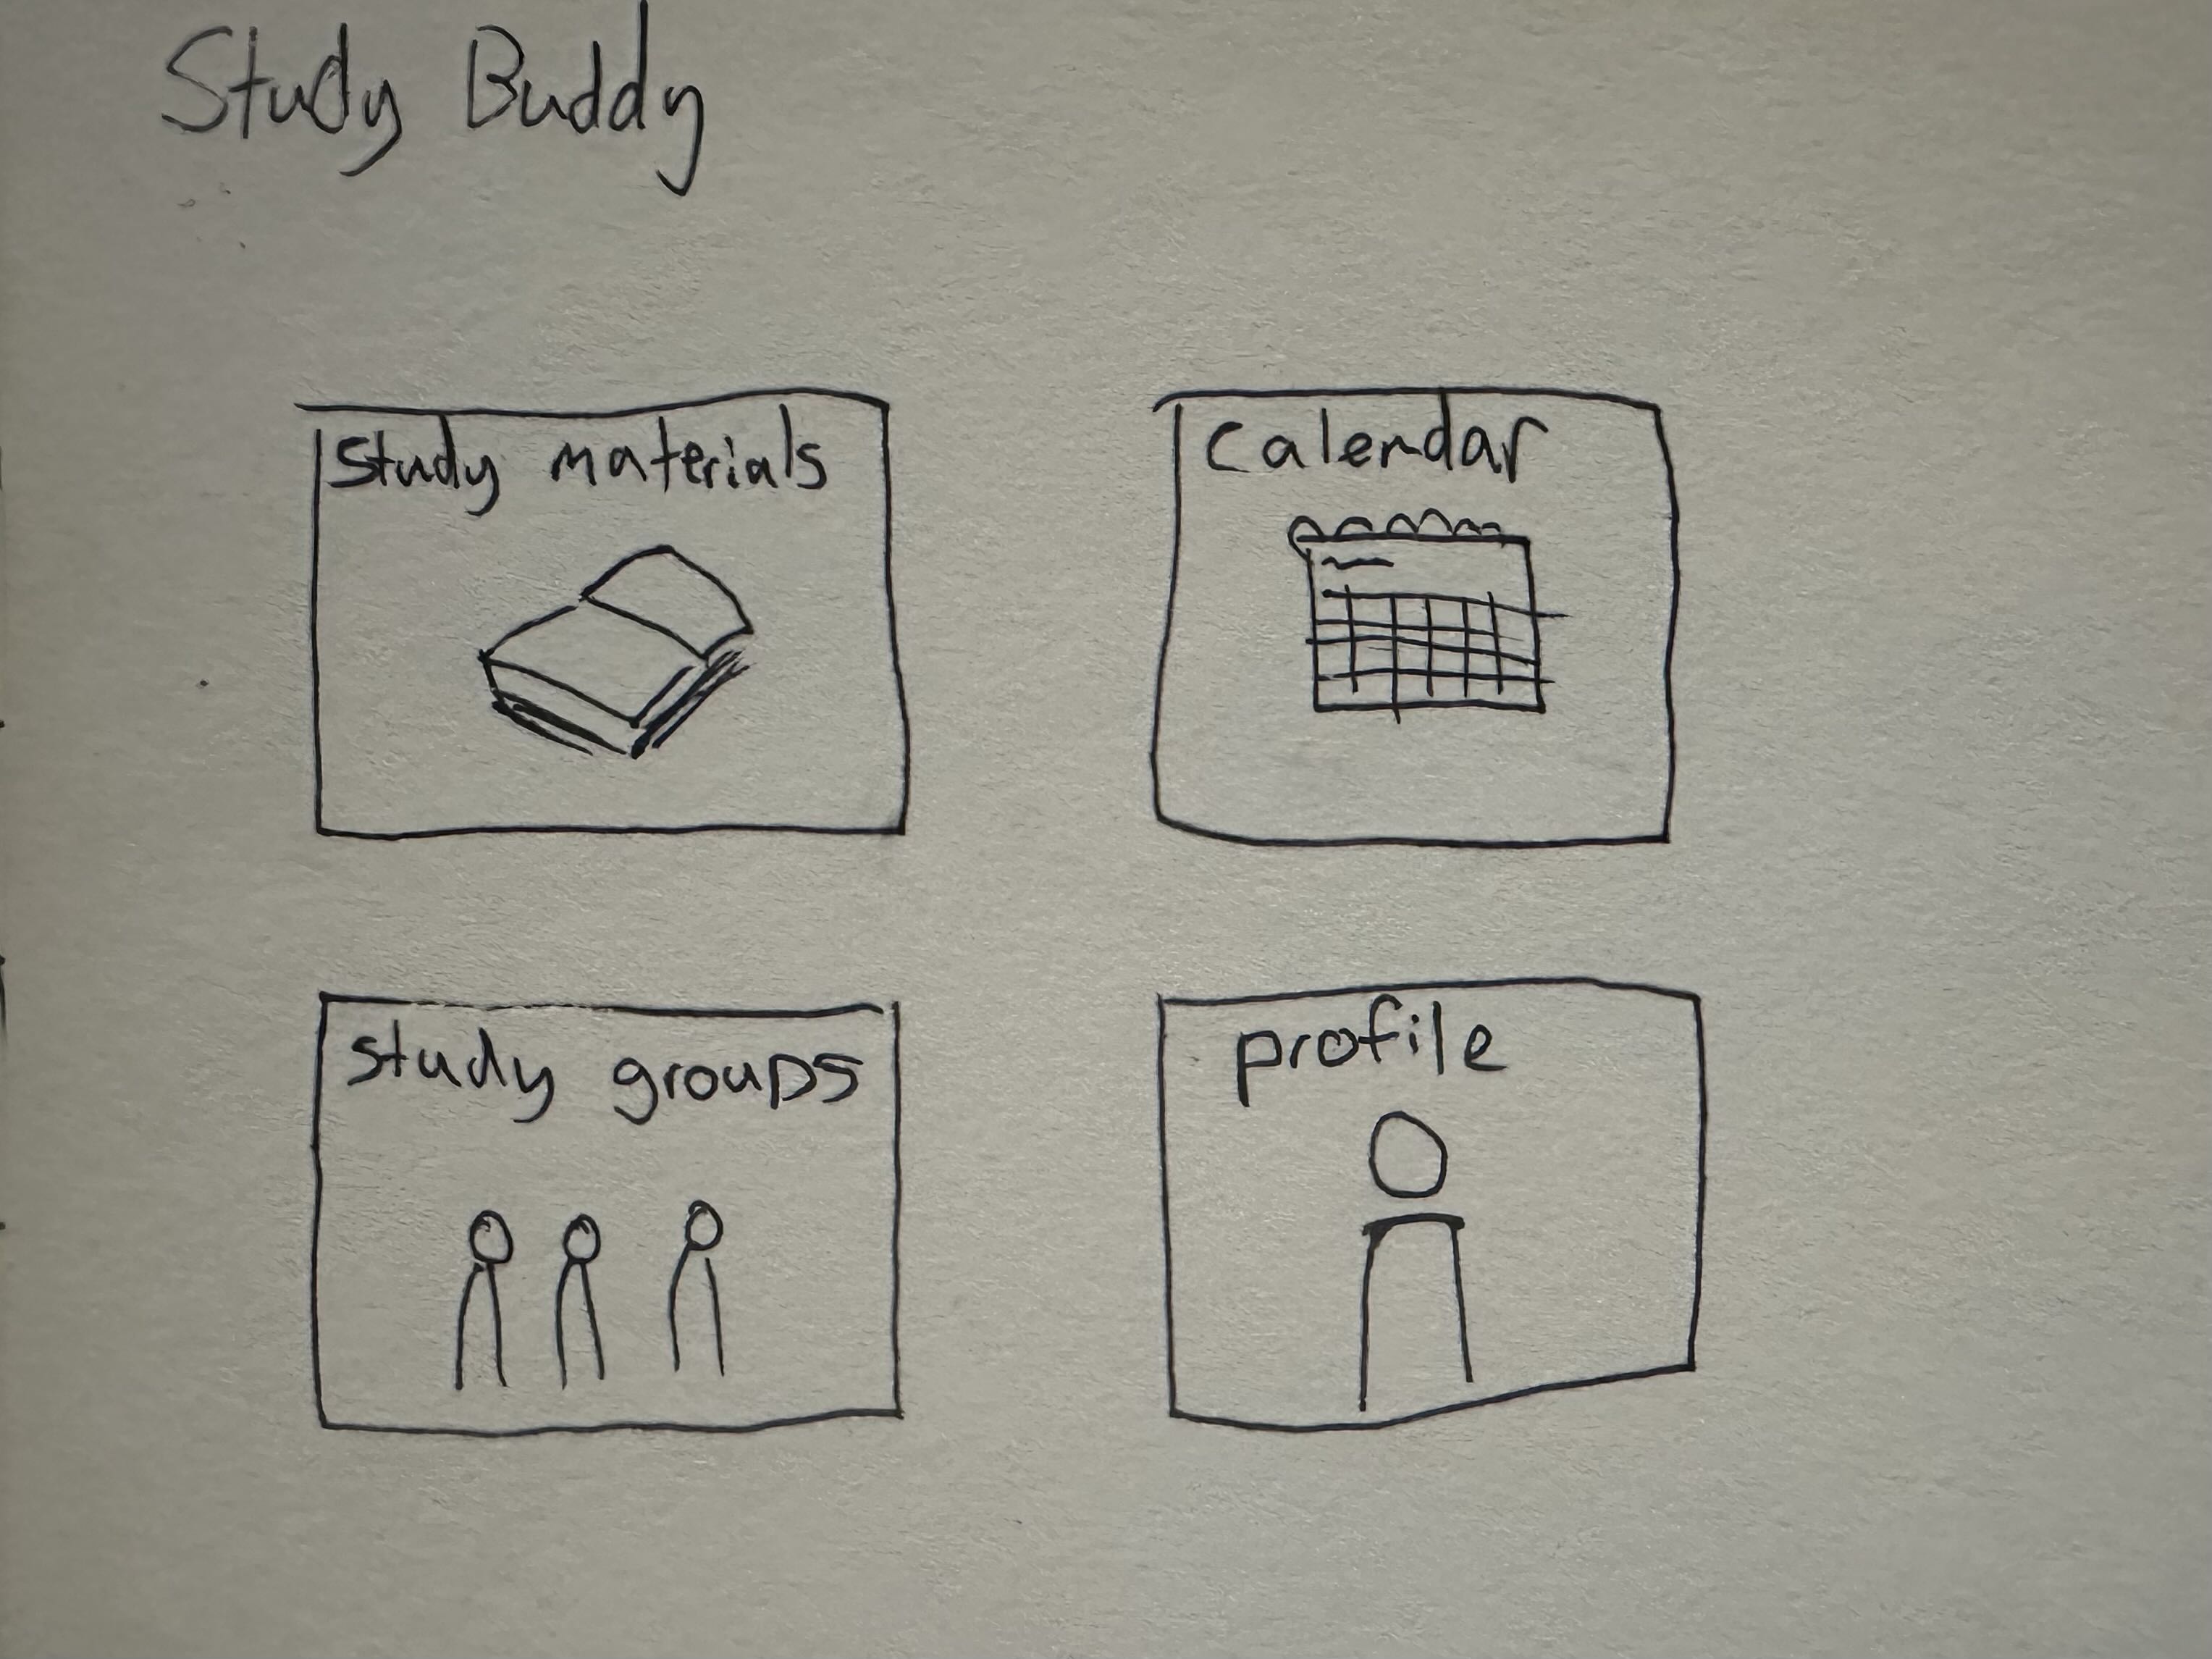 Study Buddy
Study materials
Calendar
study groups
profile